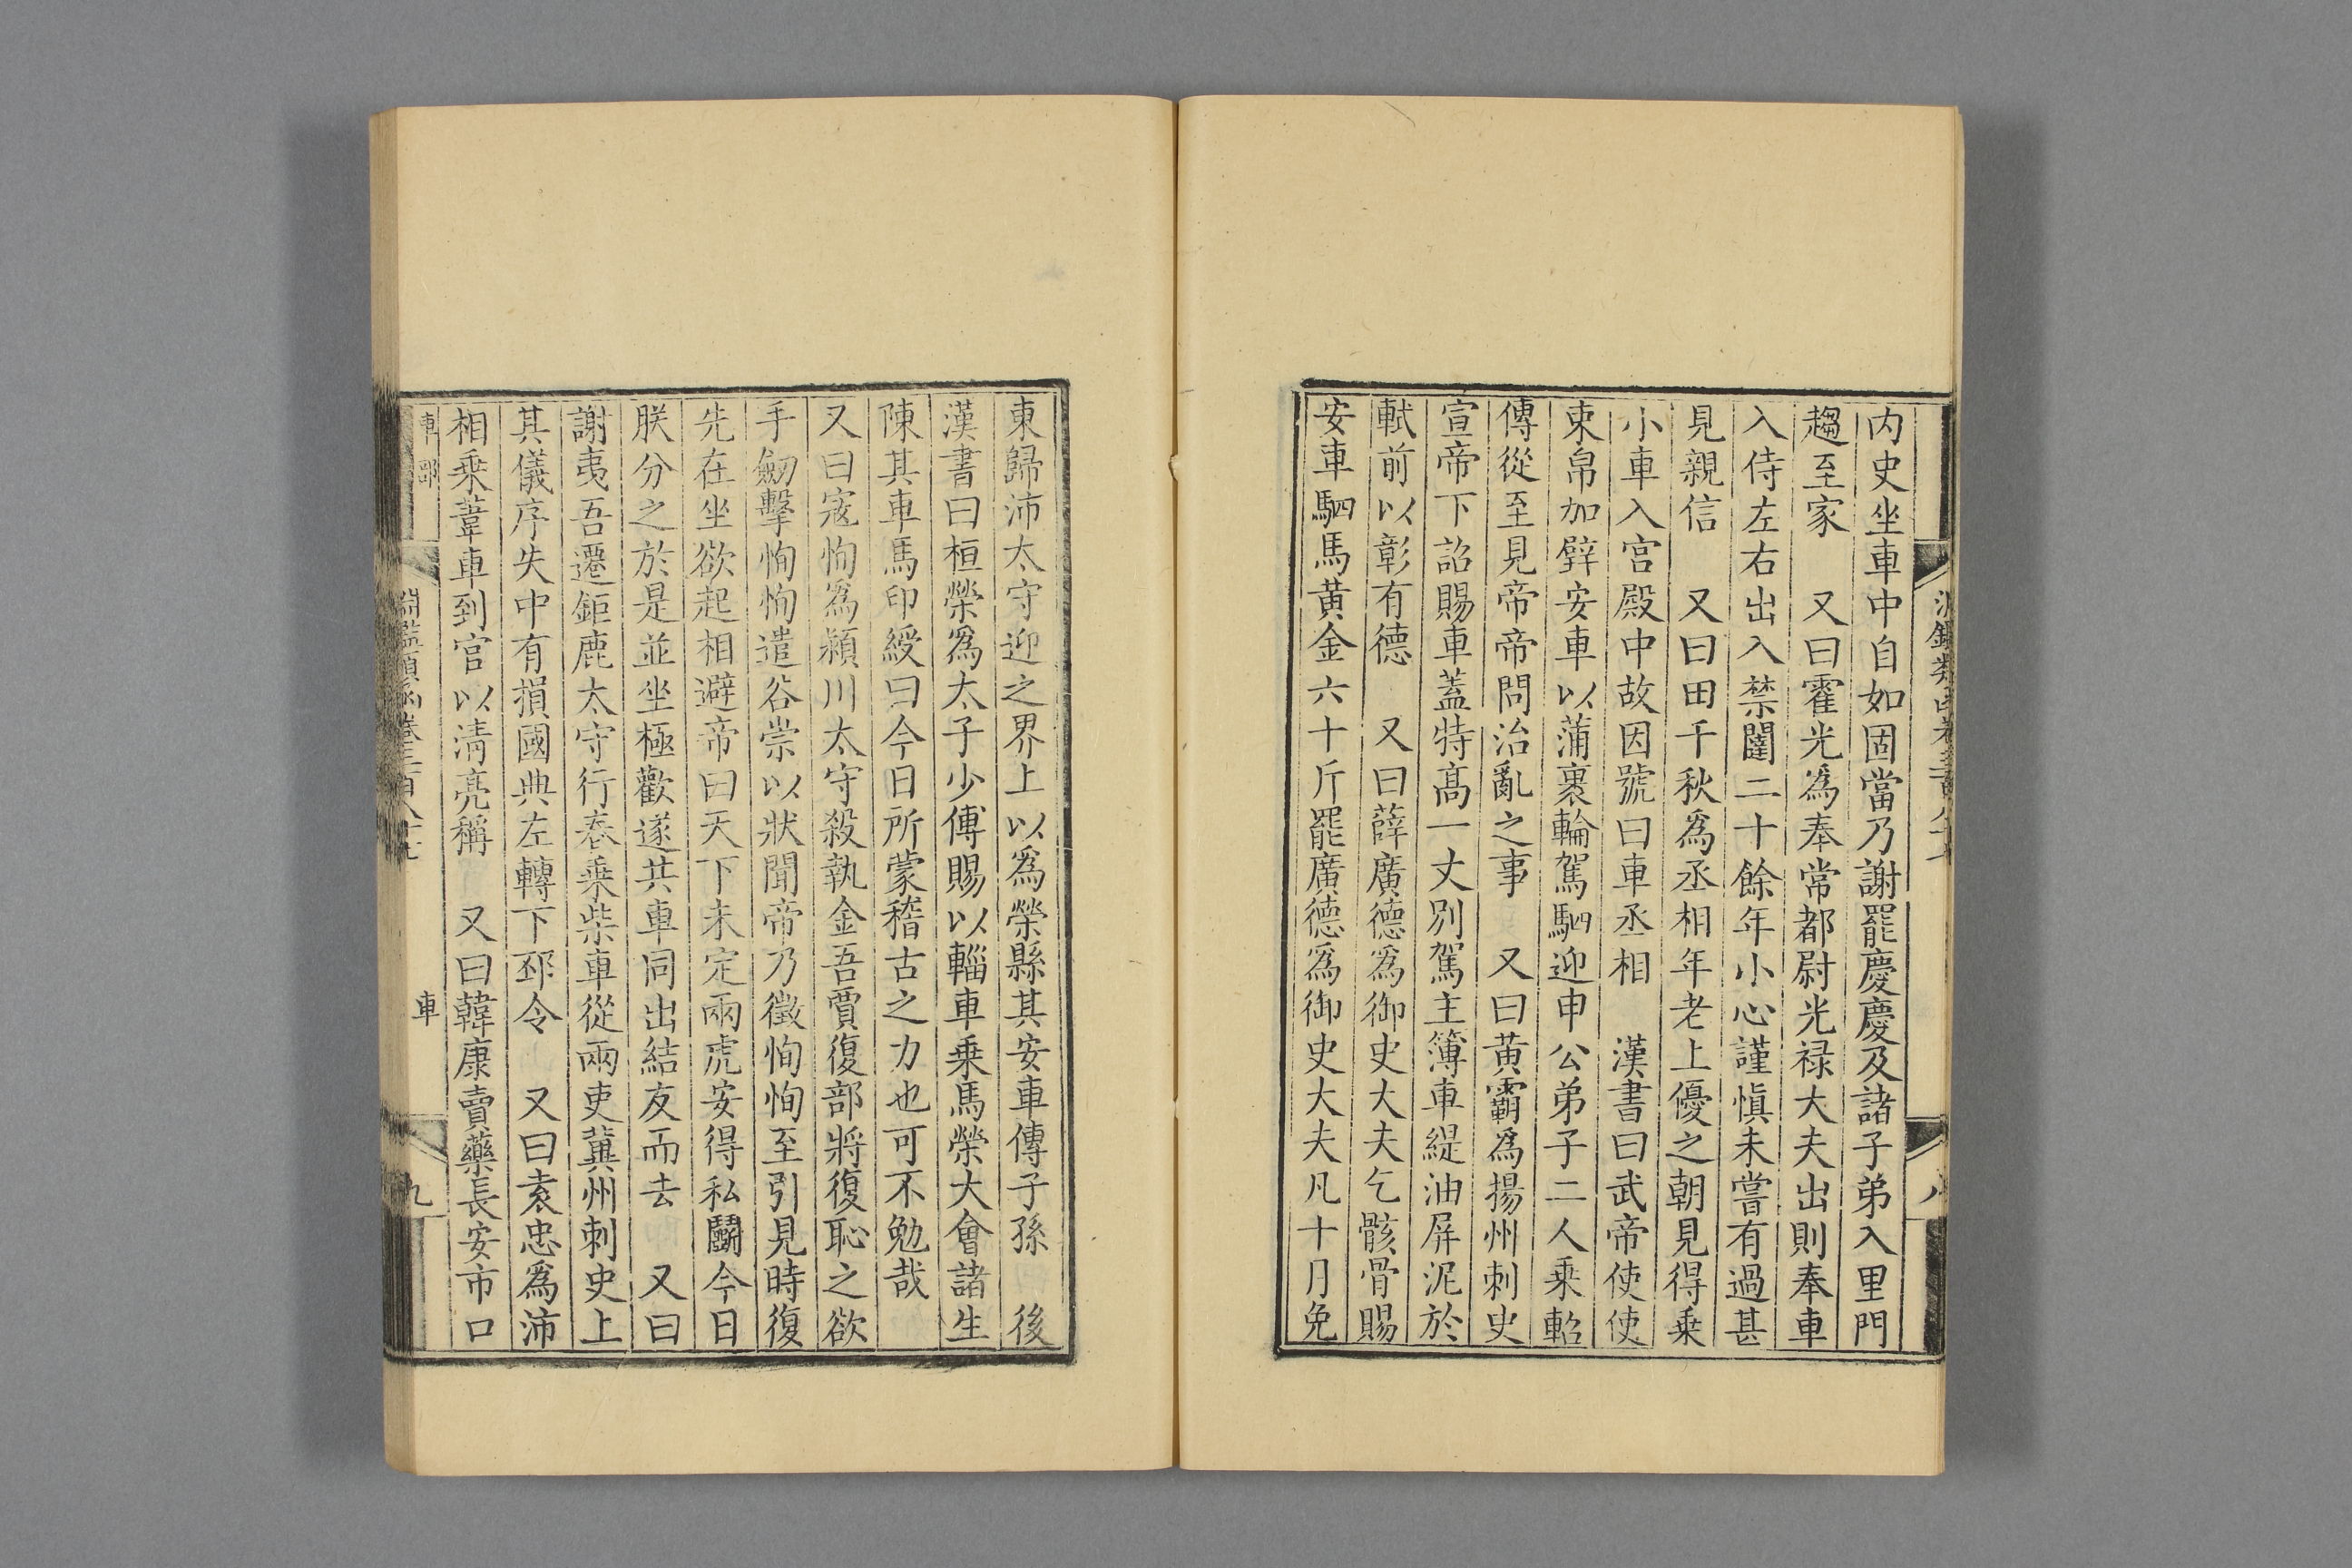 內史坐車中自如固當乃謝罷慶慶及諸子弟入里門
趨至家　又曰霍光爲奉常都尉光禄大夫出則奉車
入侍左右出入禁闥二十餘年小心謹慎未嘗有過甚
見親信　又曰田千秋爲丞相年老上優之朝見得乗
小車入宮殿中故因號曰車丞相　漢書曰武帝使使
束帛加璧安車以蒲裹輪駕駟迎申公弟子二人乗軺
傳從至見帝帝問治亂之事　又曰黄霸爲揚州刺史
宣帝下詔賜車蓋特高一丈別駕主簿車緹油屏泥於
軾前以彰有德　又曰薛廣德爲御史大夫乞骸骨賜
安車駟馬黄金六十斤罷廣德爲御史大夫凡十月免
東歸沛太守迎之界上以爲榮縣其安車傳子孫　後
漢書曰桓榮爲太子少傅賜以輜車乗馬榮大會諸生
陳其車馬印綬曰今日所蒙稽古之力也可不勉哉
又曰寇恂爲潁川太守殺執金吾賈復部將復恥之欲
手劒擊恂恂遣谷崇以狀聞帝乃徵恂恂至引見時復
先在坐欲起相避帝曰天下未定兩虎安得私鬭今日
朕分之於是並坐極歡遂共車同出結友而去　又曰
謝夷吾遷鉅鹿太守行春乗柴車從兩吏冀州刺史上
其儀序失中有損國典左轉下邳令　又曰袁忠爲沛
相乗葦車到官以清亮稱　又曰韓康賣藥長安市口
車部
淵鑑類函卷三百八十七
車
九